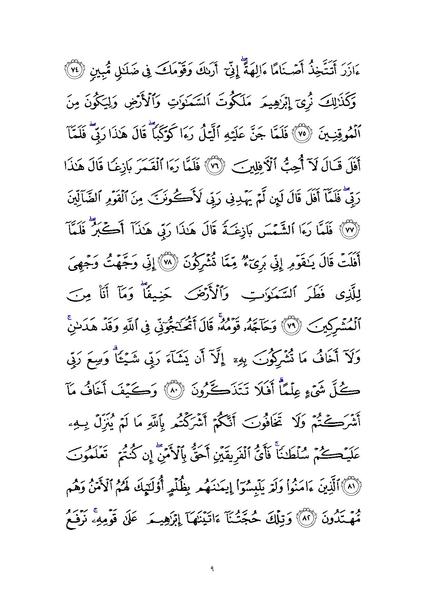 ءَازَرَ أَتَتَّخِذُ أَصْنَامًا ءَالِهَةً ۖ إِنِّىٓ أَرَىٰكَ وَقَوْمَكَ فِى ضَلَٰلٍ مُّبِينٍ ﴿٧٤﴾
وَكَذَٰلِكَ نُرِىٓ إِبْرَٰهِيمَ مَلَكُوتَ السَّمَٰوَٰتِ وَالْأَرْضِ وَلِيَكُونَ مِنَ
الْمُوقِنِينَ ﴿٧٥﴾ فَلَمَّا جَنَّ عَلَيْهِ الَّيْلُ رَءَا كَوْكَبًا ۖ قَالَ هَٰذَا رَبِّى ۖ فَلَمَّآ
أَفَلَ قَالَ لَآ أُحِبُّ الْءَافِلِينَ ﴿٧٦﴾ فَلَمَّا رَءَا الْقَمَرَ بَازِغًا قَالَ هَٰذَا
رَبِّى ۖ فَلَمَّآ أَفَلَ قَالَ لَئِن لَّمْ يَهْدِنِى رَبِّى لَأَكُونَنَّ مِنَ الْقَوْمِ الضَّآلِّينَ
﴿٧٧﴾ فَلَمَّا رَءَا الشَّمْسَ بَازِغَةً قَالَ هَٰذَا رَبِّى هَٰذَآ أَكْبَرُ ۖ فَلَمَّآ
أَفَلَتْ قَالَ يَٰقَوْمِ إِنِّى بَرِىٓءٌ مِّمَّا تُشْرِكُونَ ﴿٧٨﴾ إِنِّى وَجَّهْتُ وَجْهِىَ
لِلَّذِى فَطَرَ السَّمَٰوَٰتِ وَالْأَرْضَ حَنِيفًا ۖ وَمَآ أَنَا۠ مِنَ
الْمُشْرِكِينَ ﴿٧٩﴾ وَحَآجَّهُۥ قَوْمُهُۥ ۚ قَالَ أَتُحَٰٓجُّوٓنِّى فِى اللَّهِ وَقَدْ هَدَىٰنِ ۚ
وَلَآ أَخَافُ مَا تُشْرِكُونَ بِهِۦٓ إِلَّآ أَن يَشَآءَ رَبِّى شَيْـًٔا ۗ وَسِعَ رَبِّى
كُلَّ شَىْءٍ عِلْمًا ۗ أَفَلَا تَتَذَكَّرُونَ ﴿٨٠﴾ وَكَيْفَ أَخَافُ مَآ
أَشْرَكْتُمْ وَلَا تَخَافُونَ أَنَّكُمْ أَشْرَكْتُم بِاللَّهِ مَا لَمْ يُنَزِّلْ بِهِۦ
عَلَيْكُمْ سُلْطَٰنًا ۚ فَأَىُّ الْفَرِيقَيْنِ أَحَقُّ بِالْأَمْنِ ۖ إِن كُنتُمْ تَعْلَمُونَ
﴿٨١﴾ الَّذِينَ ءَامَنُوا۟ وَلَمْ يَلْبِسُوٓا۟ إِيمَٰنَهُم بِظُلْمٍ أُو۟لَٰٓئِكَ لَهُمُ الْأَمْنُ وَهُم
مُّهْتَدُونَ ﴿٨٢﴾ وَتِلْكَ حُجَّتُنَآ ءَاتَيْنَٰهَآ إِبْرَٰهِيمَ عَلَىٰ قَوْمِهِۦ ۚ نَرْفَعُ
٩